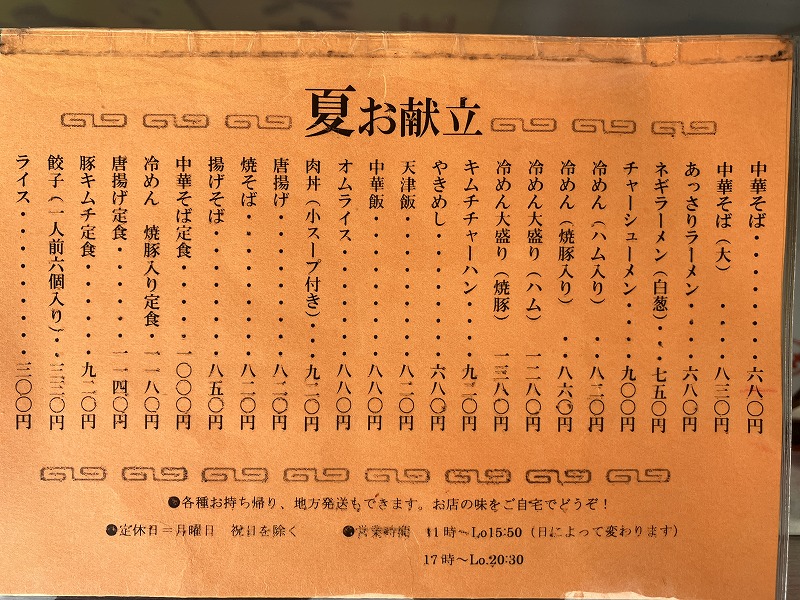 夏お献立
中華そば・・・・・・・・六八〇円
中華そば（大）・・・・八三〇円
あっさりラーメン・・・・六八〇円
ネギラーメン（白葱）・・・七五〇円
チャーシューメン・・・・九〇〇円
冷めん（ハム入り）・・・八三〇円
冷めん（焼豚入り）・・八六〇円
冷めん大盛り（ハム）一二八〇円
冷めん大盛り（焼豚）一三八〇円
キムチチャーハン・・・・九二〇円
やきめし・・・・・・・六八〇円
天津飯・・・・・・・・八二〇円
中華飯・・・・・・・・八八〇円
オムライス・・・・・・八八〇円
肉丼（小スープ付き）・・・九二〇円
唐揚げ・・・・・・・・八二〇円
焼そば・・・・・・・・八二〇円
揚げそば・・・・・・・八五〇円
中華そば定食・・・・一〇〇〇円
冷めん 焼豚入り定食・一一八〇円
唐揚げ定食・・・・・一一四〇円
豚キムチ定食・・・・・九二〇円
餃子（一人前六個入り）・・三三〇円
ライス・・・・・・・・・三〇〇円
●各種お持ち帰り、地方発送もできます。お店の味をご自宅でどうぞ！
●定休日＝月曜日 祝日を除く ●営業時間 11時～Lo15:50（日によって変わります）
17時～Lo.20:30